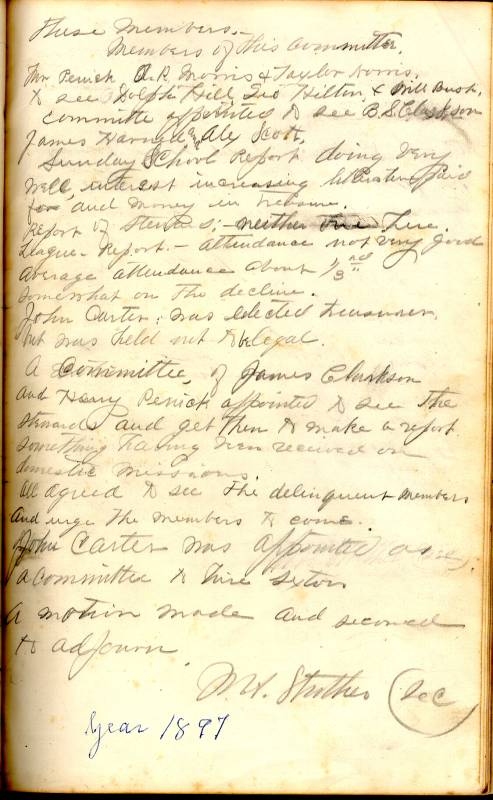 these members.—
Members of this committee.
Wm Penick A. R. Morris & Taylor Norris.
to see Dolph Hill, Geo Hilton & Will Bush.
Committe appointed to see B. S. Clarkson
James Harned & Alex Scott.
Sunday School Report doing very
well, interest increasing literature paid
for and money in
Report of Stewards;— neither one here.
League Report.— attendance not very good
average attendance about 1/3 rd
somewhat on the decline.
John Carter; was elected treasurer,
but was held not to be legal.
A Committee, of James Clarkson
and Henry Penick appointed to see the
stewards and get them to make a report
something having been received on
domestic missions.
all agreed to see the delinquent members
and urge the members to come.
John Carter was appointed as
a committee to hire sexton
A motion made and seconed
to adjourn
Strother (Sec
Year 1897